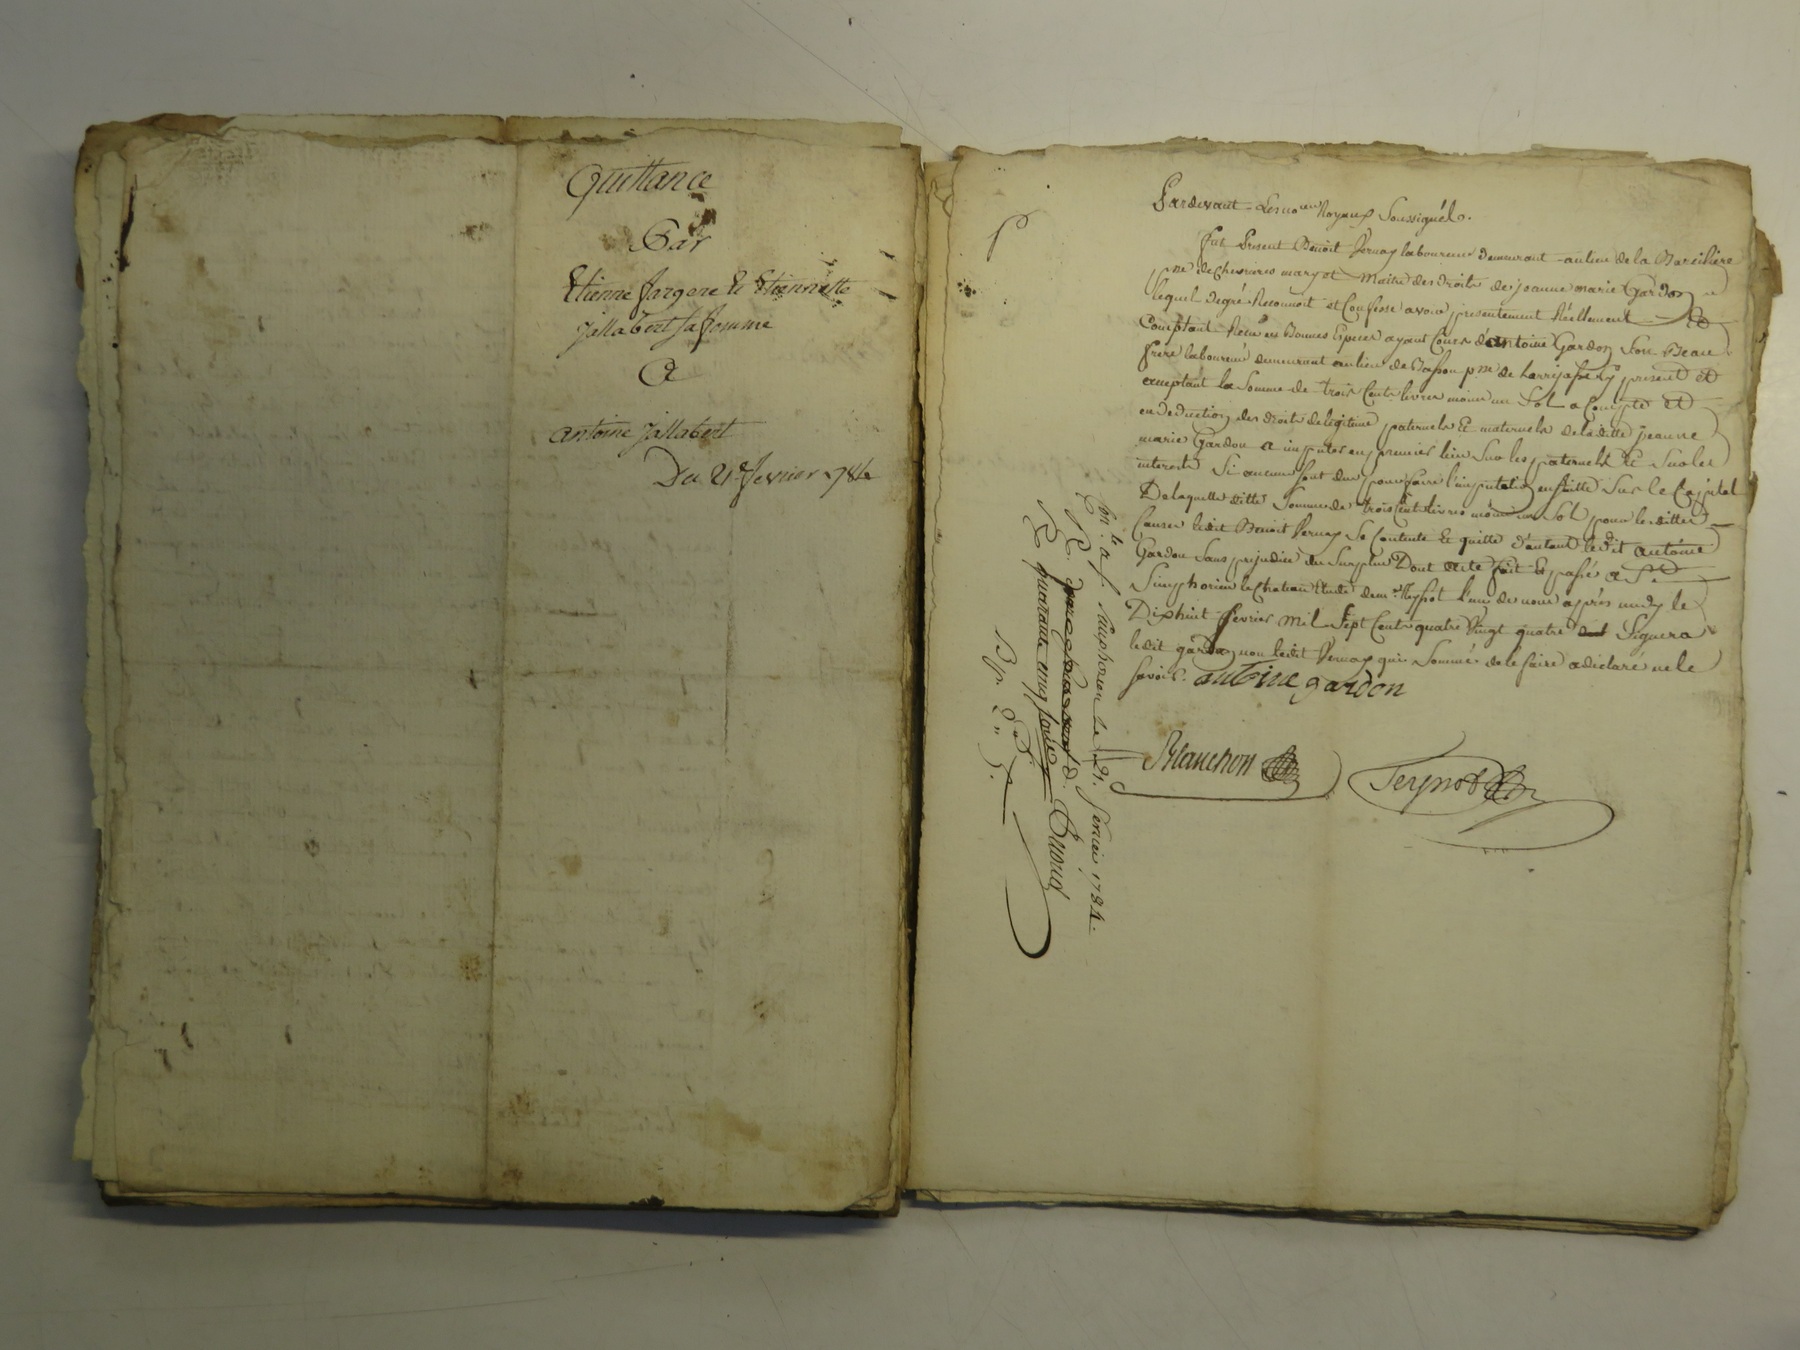 Quittance
Par
Etienne fargere & Etiennette
Jallabert sa femme
A
antoine jallabert
Du 21e fevrier 1784
Pardevant Les no.res Royaux Soussignés.
fut Present Benoit Vernay laboureur demeurant au lieu de la
p.sse de Chevrieres mary et Maitre des droits de jeanne marie Gardon
lequel degré Reconnoit et Confesse avoir presentement Réellement
Comptant Reçu en Bonnes Especes ayant Cours d'antoine Gardon Son Beau
frere laboureur demeurant au lieu de p.sse de Larrajasse y present et
acceptant la Somme de trois Cents livres moins un Sol a Compte et
en deduction des droits de legitime paternels & maternels de laditte jeanne
marie Gardon a imputer en premier lieu Sur les paternels & Sur les
interets Si aucuns Sont dus pour faire l'imputation ensuitte Sur le Capital
De laquelle ditte Somme de trois Cents livres moins un Sol pour les dittes
Causes ledit Benoit Vernay Se Contente & quitte d'autant ledit antoine
Gardon Sans prejudice du Surplus Dont acte fait & passé a St
Simphorien le Chateau Etude de m.e l'un de nous après midy le
Dixhuit fevrier mil Sept Cents quatre Vingt quatre Signera
ledit gardon non ledit Vernay qui Sommé de le faire a declaré ne le
Savoir. antoine gardon
Blanchon
Con.lé a S. Simphorien Le 21. fevrier 1784.
R.
R. quarante cinq sous